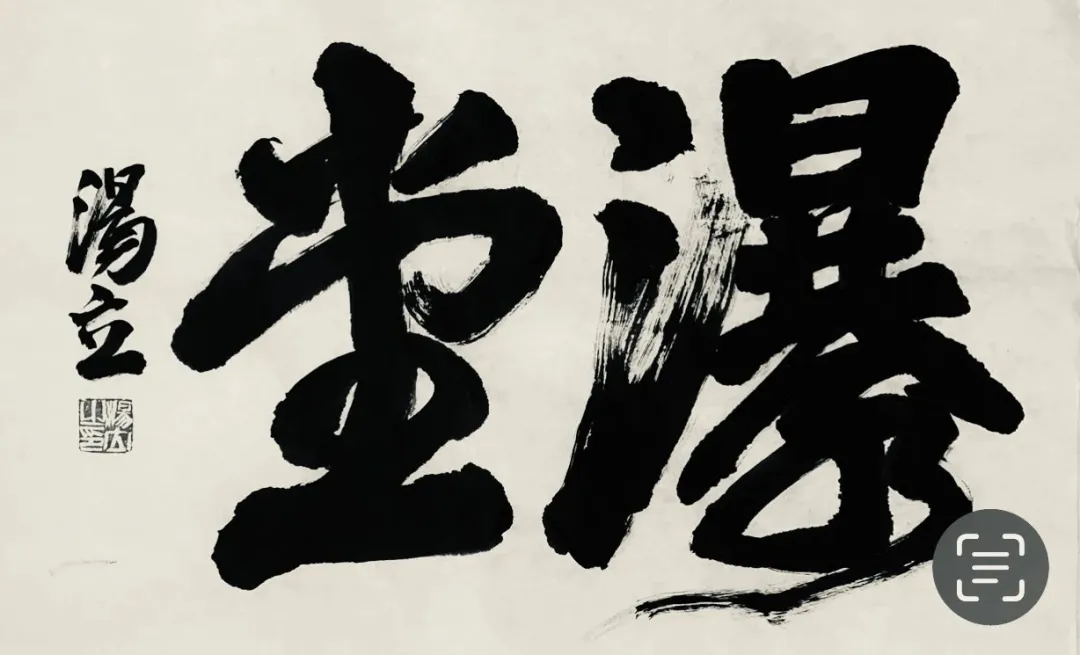 瀑堂
湯立